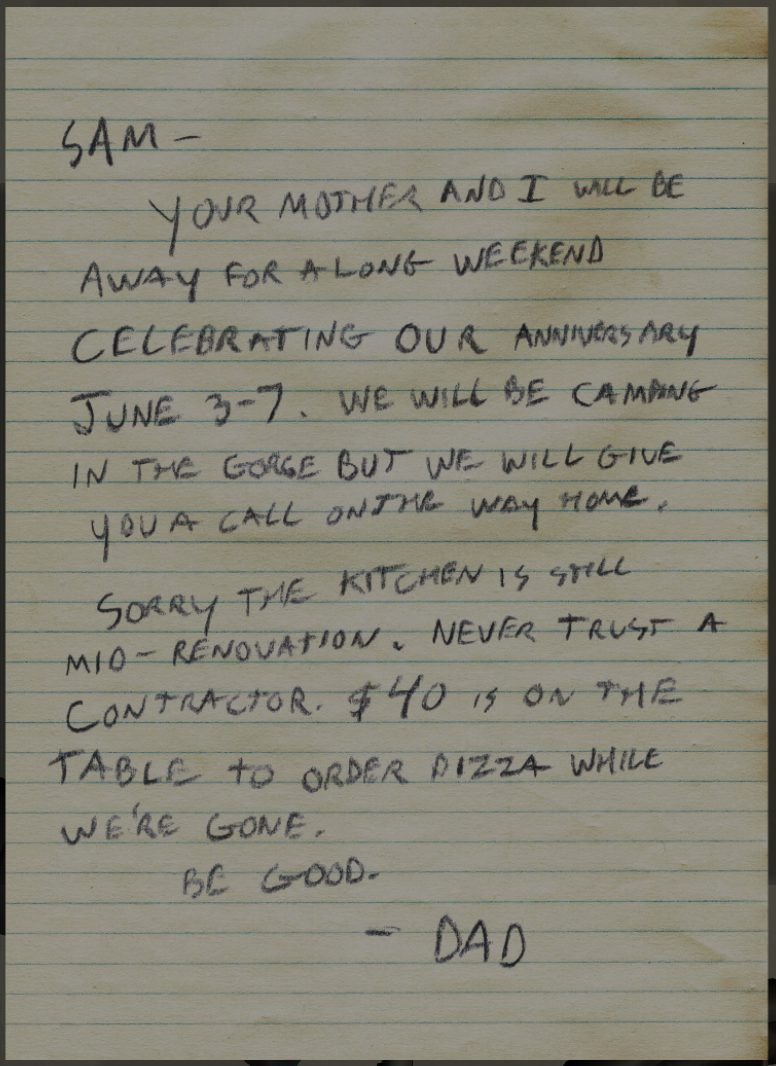 SAM -
YOUR MOTHER AND I WILL BE
AWAY FOR A LONG WEEKEND
CELEBRATING OUR ANNIVERSARY
JUNE 3-7. WE WILL BE CAMPING
IN THE GORGE BUT WE WILL GIVE
YOU A CALL ON THE WAY HOME.
SORRY THE KITCHEN IS STILL
MID-RENOVATION. NEVER TRUST A
CONTRACTOR. $40 IS ON THE
TABLE TO ORDER PIZZA WHILE
WE'RE GONE.
BE GOOD.
- DAD